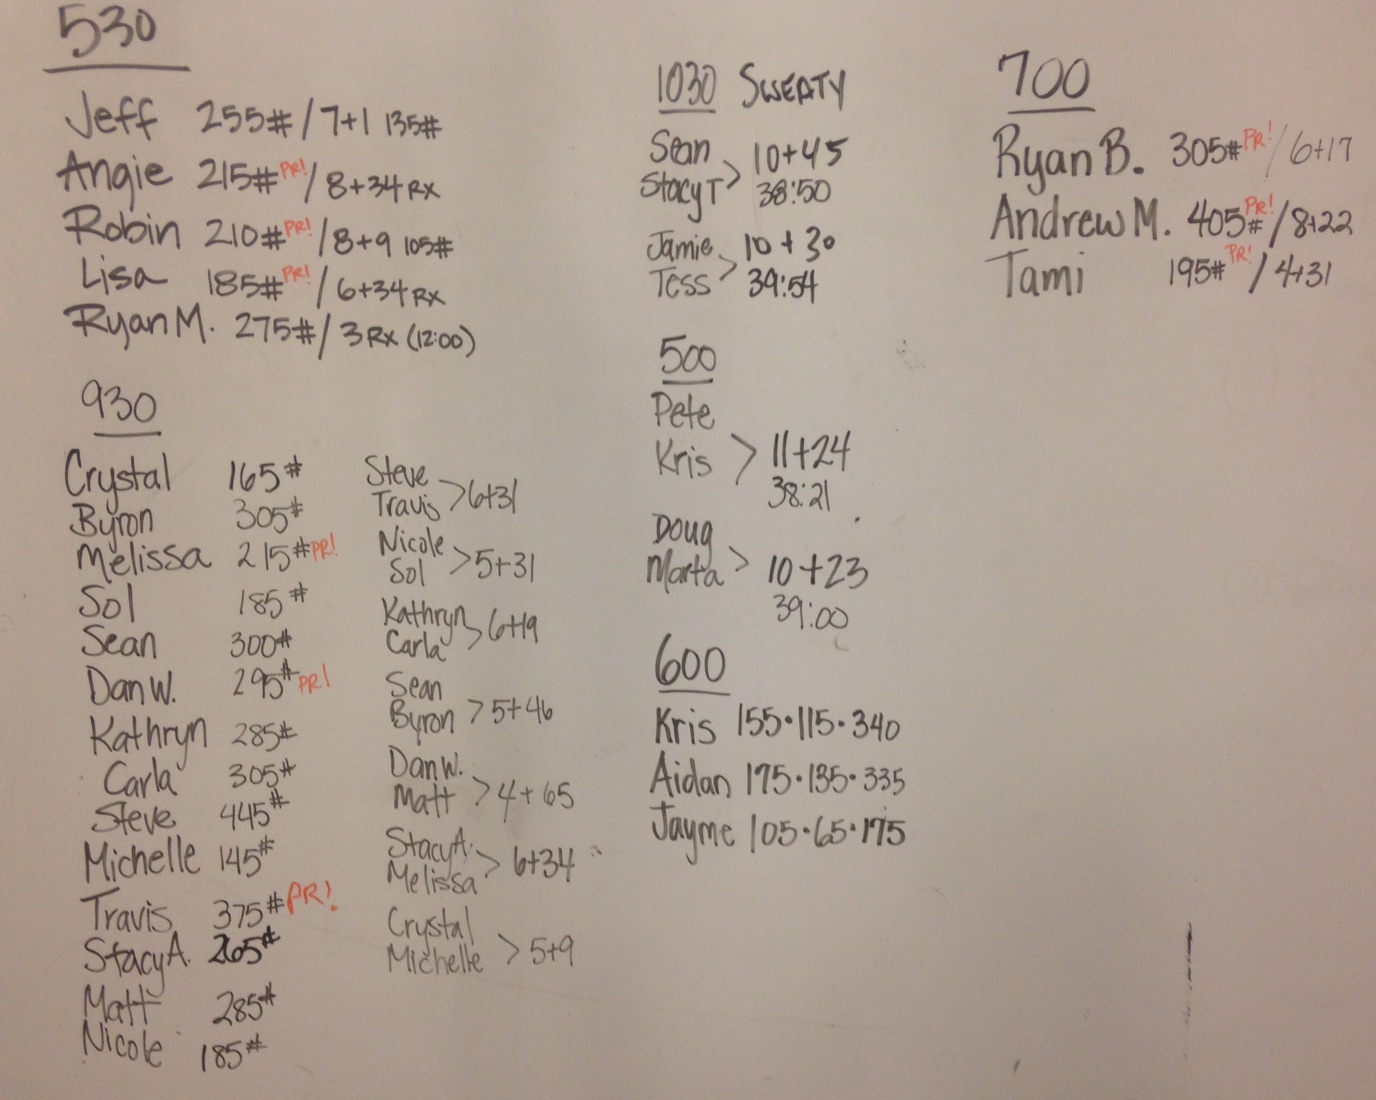 530
Jeff 255# / 7+1 135#
Angie 215# PR! / 8+34 RX
Robin 210# PR! / 8+9 105#
Lisa 185# PR! / 6+34 RX
Ryan M. 275# / 3 RX (12:00)
930
Crystal 165#
Byron 305#
Melissa 215# PR!
Sol 185#
Sean 300#
Dan W. 295# PR!
Kathryn 285#
Carla 305#
Steve 445#
Michelle 145#
Travis 375# PR!
Stacy A. 265#
Matt 285#
Nicole 185#
Steve
Travis > 6+31
Nicole
Sol > 5+31
Kathryn
Carla > 6+19
Sean
Byron > 5+46
Dan W.
Matt > 4+65
Stacy A.
Melissa > 6+34
Crystal
Michelle > 5+9
1030 SWEATY
Sean > 10+45
Stacy T 38:50
Jamie > 10+30
Tess 39:54
500
Pete
Kris > 11+24
38:21
Doug
Marta > 10+23
39:00
600
Kris 155·115·340
Aidan 175·135·335
Jayme 105·65·175
700
Ryan B. 305# PR! / 6+17
Andrew M. 405# PR! / 8+22
Tami 195# PR! / 4+31